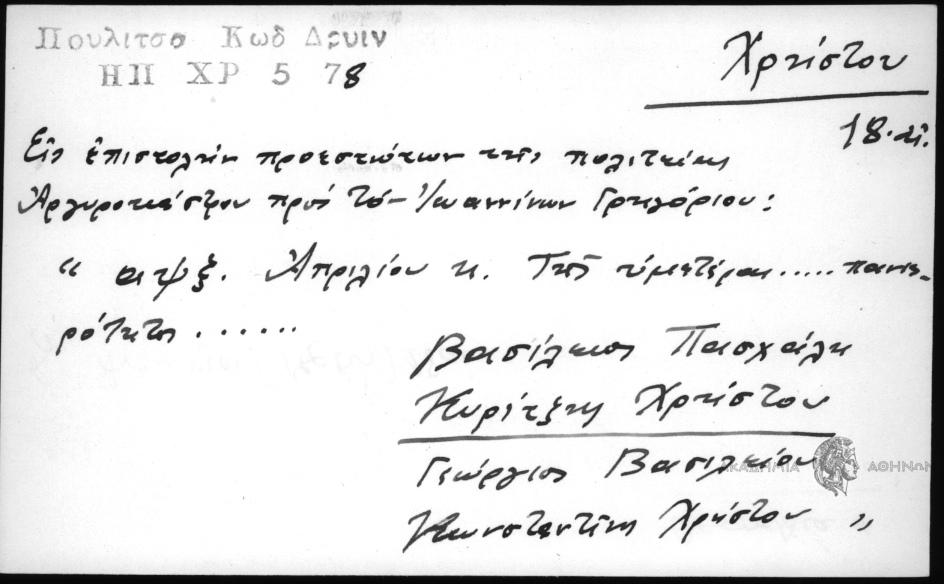 Πουλιτσα Κωδ Δρυιν
ΗΠ ΧΡ 5 78
Χρήστου
18. αἰ.
Εἰς ἐπιστολὴν προεστώτων τῆς πολιτείας
Ἀργυροκάστρου πρὸς τὸν Ἰωαννίνων Γρηγόριου:
“ αψξ. Ἀπριλίου κ. Τῆς ὑμετέρας ..... πανιε-
ρότητος ......
Βασίλειος Πασχάλη
Κυρίτζης Χρήστου
Γεώργιος Βασιλείου
Κωνσταντίνης Χρήστου ”
ΑΚΑΔΗΜΙΑ ΑΘΗΝΩΝ